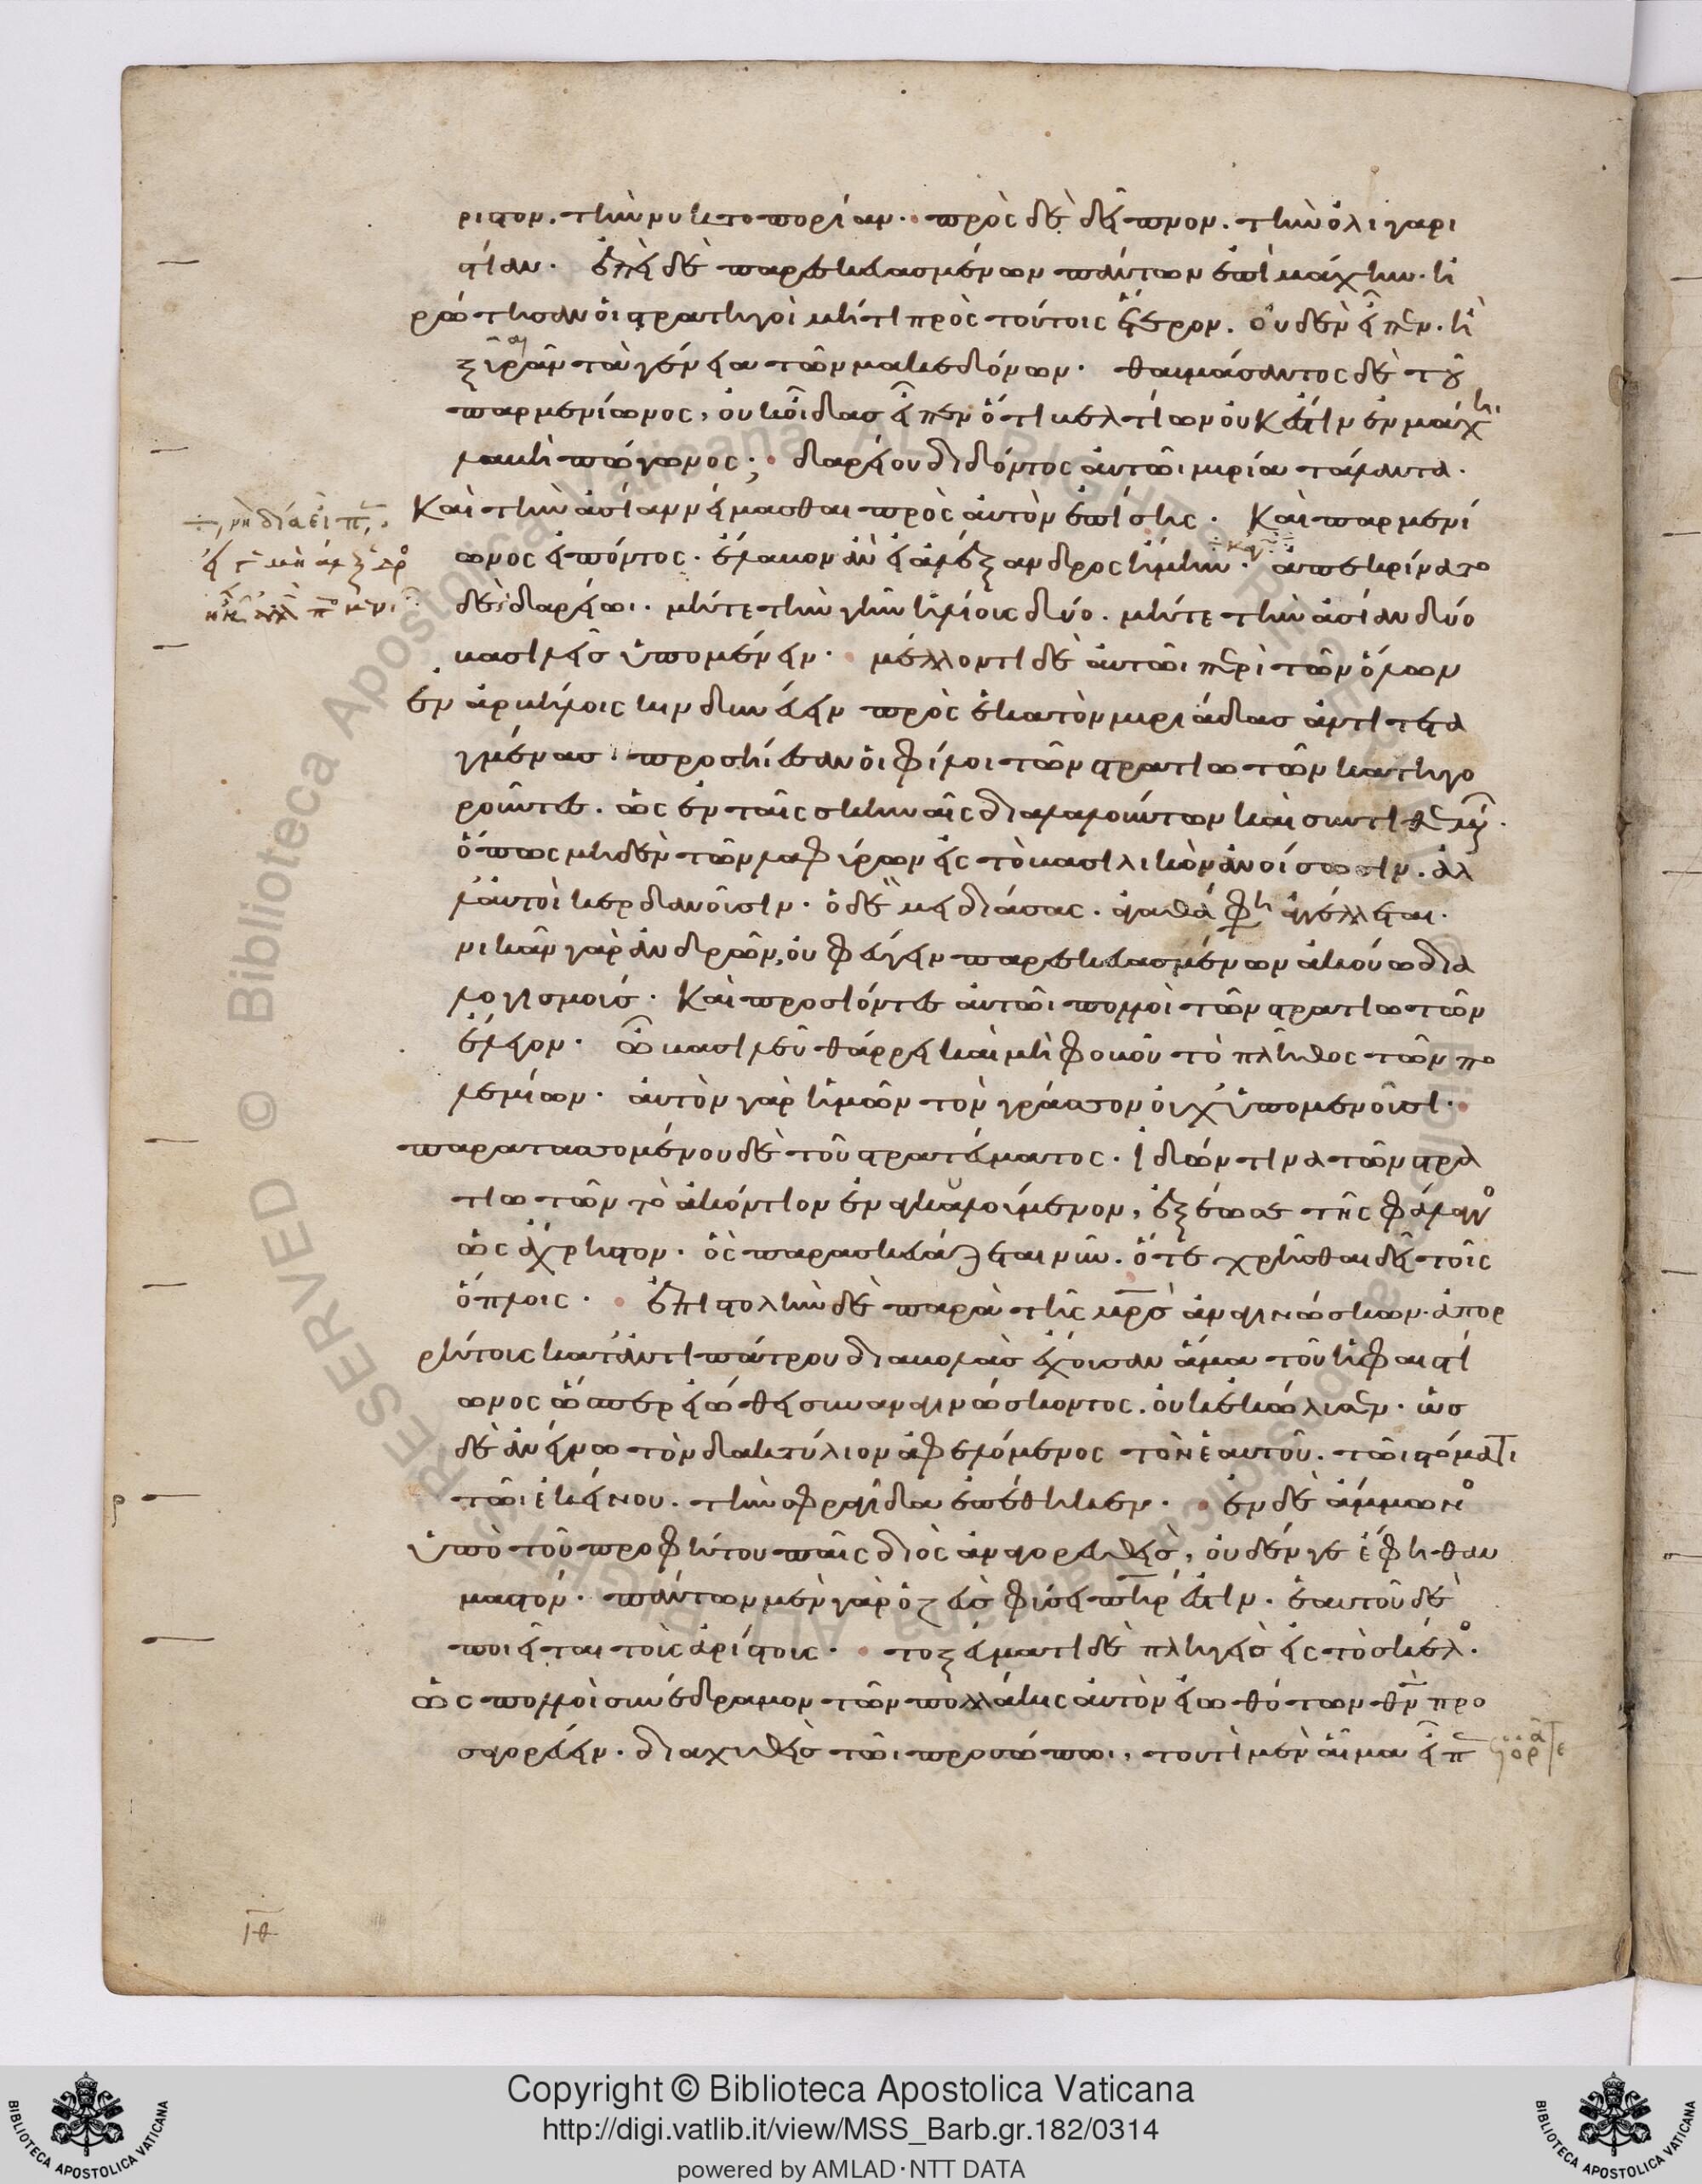 ριστον. τὴν νυκτοπορίαν. πρὸς δὲ δεῖπνον. τὴν ὀλιγαρι
στίαν. ἐπεὶ δὲ παρεσκευασμένων πάντων ἐπὶ μάχην. ἠ
ρώτησαν οἱ στρατηγοὶ μή τι πρὸς τούτοις ἕτερον. οὐδὲν εἶπεν. ἢ
ξυρᾶν τὰ γένεια τῶν μακεδόνων. θαυμάσαντος δὲ τοῦ
παρμενίωνος, οὐκ οἶδας εἶπεν ὅτι βελτίων οὐκ ἔστιν ἐν μάχη
λαβὴ πώγωνος; δαρείου διδόντος αὐτῶι μυρία τάλαντα.
Καὶ τὴν ἀσίαν νείμασθαι πρὸς αὐτὸν ἐπίσης. Καὶ παρμενί
ωνος εἰπόντος. ἔλαβον ἂν εἰ ἀλέξανδρος ἤμην. ἀπεκρίνατο
δὲ δαρείωι. μήτε τὴν γῆν ἡλίους δύο. μήτε τὴν ἀσίαν δύο
βασιλεῖς ὑπομένειν. μέλλοντι δὲ αὐτῶι περὶ τῶν ὅλων
ἐν ἀρβήλοις κινδυνεύειν πρὸς ἑκατὸν μυριάδας ἀντιτετα
γμένας. προσήιεσαν οἱ φίλοι τῶν στρατιωτῶν κατηγο
ροῦντες. ὡς ἐν ταῖς σκηναῖς διαλαλούντων καὶ συντιθεμένων.
ὅπως μηδὲν τῶν λαφύρων εἰς τὸ βασιλικὸν ἀνοίσωσιν. ἀλ
λ' αὐτοὶ κερδανοῦσιν. ὁ δὲ μειδιάσας. ἀγαθά φη ἀγγέλλεται.
νικᾶν γὰρ ἀνδρῶν, οὐ φεύγειν παρεσκευασμένων ἀκούω δια
λογισμούς. Καὶ προσιόντες αὐτῶι πολλοὶ τῶν στρατιωτῶν
ἔλεγον. ὦ βασιλεῦ θάρρει καὶ μὴ φοβοῦ τὸ πλῆθος τῶν πο
λεμίων. αὐτὸν γὰρ ἡμῶν τὸν γράσσον οὐχ ὑπομενοῦσι.
παρατασσομένου δὲ τοῦ στρατεύματος. ἰδών τινα τῶν στρα
τιωτῶν τὸ ἀκόντιον ἐναγκυλούμενον, ἐξέωσε τῆς φάλαγγος
ὡς ἄχρηστον. ὃς παρασκευάζεται νῦν. ὅτε χρῆσθαι δεῖ τοῖς
ὅπλοις. ἐπιστολὴν δὲ παρὰ τῆς μρς ἀναγινώσκων. ἀπορ
ρήτους κατ' ἀντιπάτρου διαβολὰς ἔχουσαν ἅμα τοῦ ἡφαιστί
ωνος ὥσπερ εἰώθει συναναγινώσκοντος. οὐκ ἐκώλυσεν. ὡς
δὲ ἀνέγνω τὸν δακτύλιον ἀφελόμενος τὸν ἑαυτοῦ. τῶι στόματι
τῶι ἐκείνου. τὴν σφραγῖδα ἐπέθηκεν. ἐν δὲ ἄμμωνος
ὑπὸ τοῦ προφήτου παῖς διὸς ἀναγορευθείς, οὐδέν γε ἔφη θαυ
μαστόν. πάντων μὲν γὰρ ὁ ζεὺς φύσει πηρ ἐστιν. ἑαυτοῦ δὲ
ποιεῖται τοὺς ἀρίστους. τοξεύματι δὲ πληγεὶς εἰς τὸ σκέλος.
ὡς πολλοὶ συνέδραμον τῶν πολλάκις αὐτὸν εἰωθότων θν προ
σαγορεύειν. διαχυθεὶς τῶι προσώπωι, τουτὶ μὲν αἷμα εἶπεν
ιθ
Copyright © Biblioteca Apostolica Vaticana
http://digi.vatlib.it/view/MSS_Barb.gr.182/0314
powered by AMLAD·NTT DATA